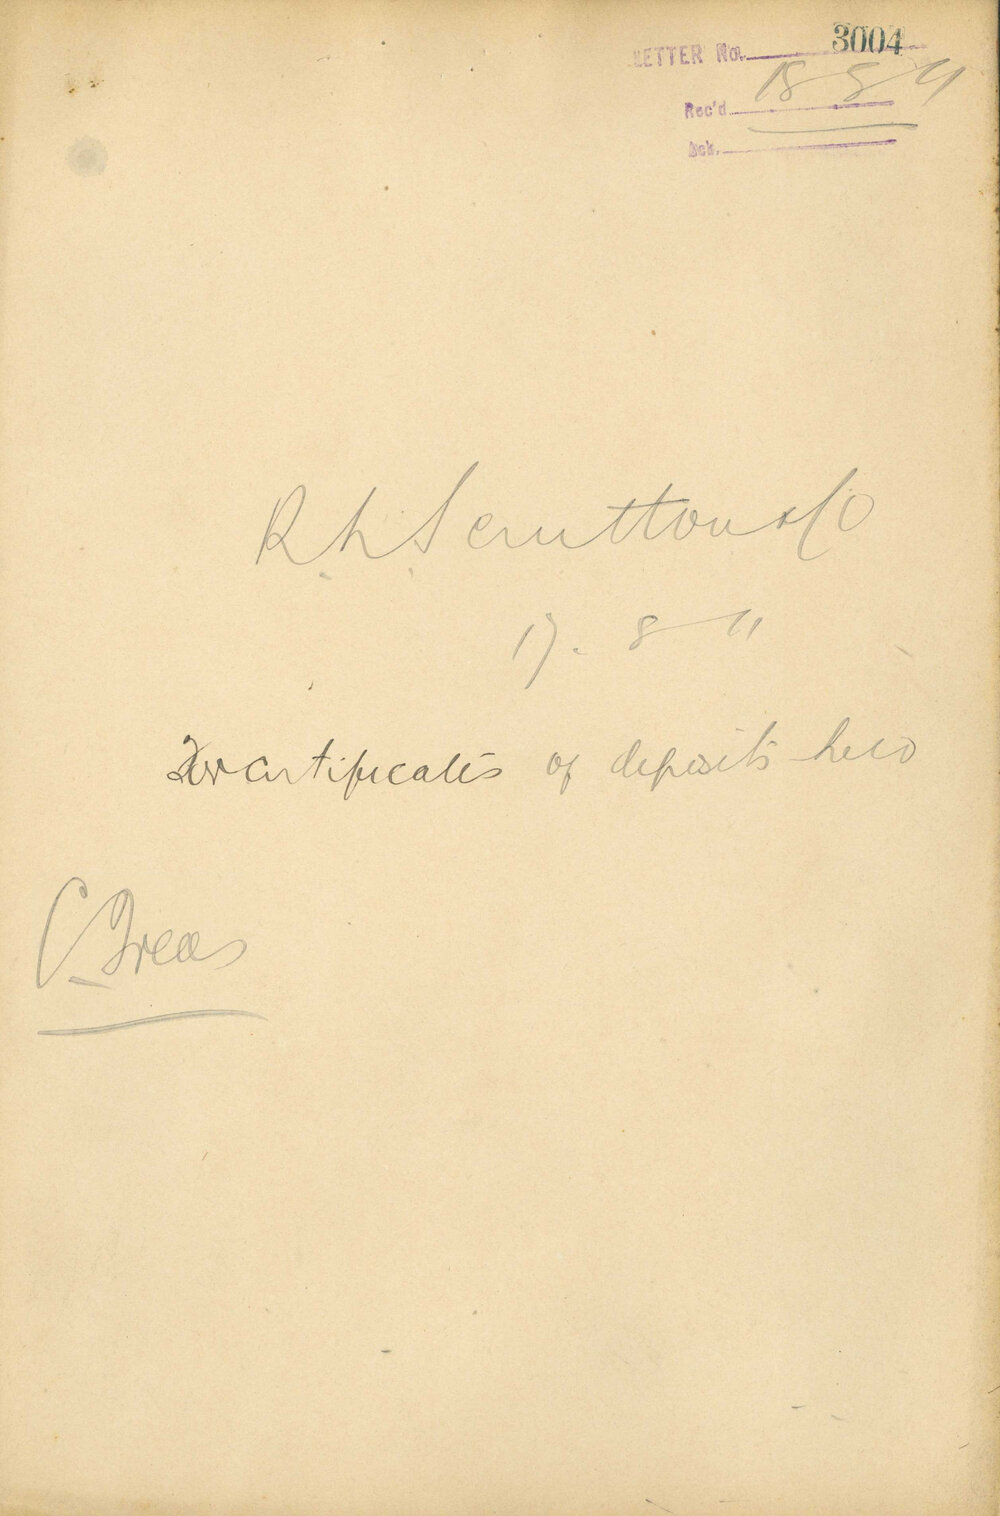 LETTER No. 3004
Rec'd 18 8 11
Ack.
R. L. Scrutton & Co
17. 8 11
For certificates of deposits held
C. Treas